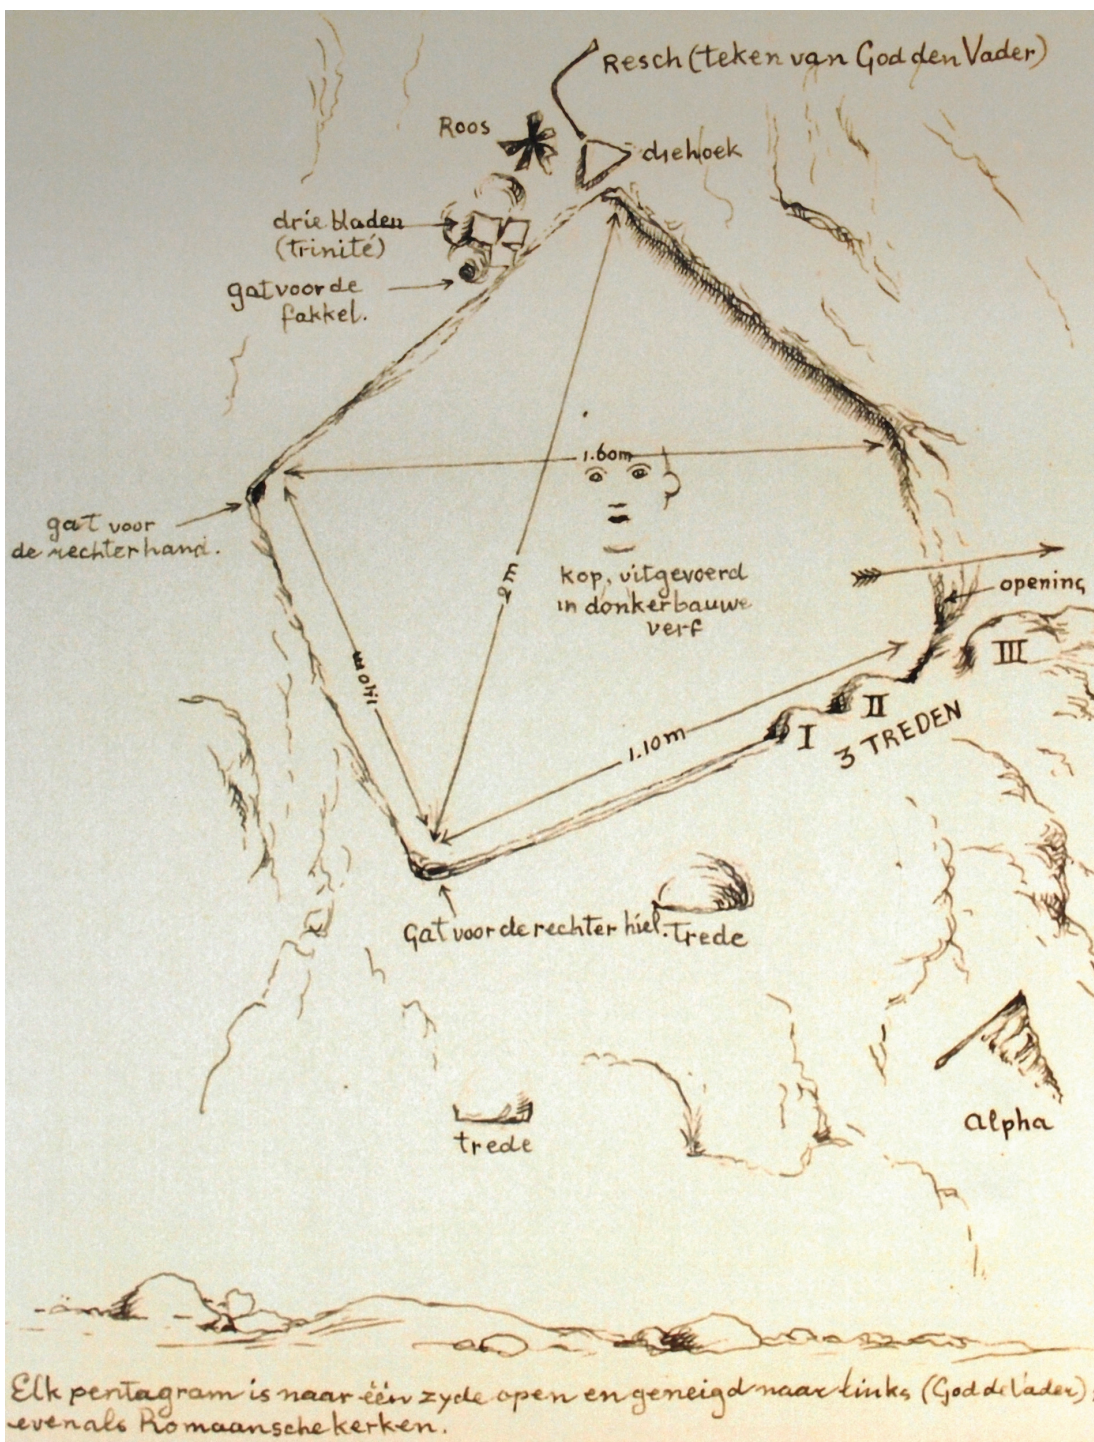 Resch (teken van God den Vader)
Roos
driehoek
drie bladen
(trinité)
gat voor de
fakkel.
1.60m
gat voor
de rechterhand.
kop, uitgevoerd
in donkerbauwe
verf
2m
opening
III
II
I
3 TREDEN
1.10m
1.10m
Gat voor de rechter hiel.
trede
Alpha
trede
Elk pentagram is naar één zyde open en geneigd naar links (God de Vader)
evenals Romaansche kerken.